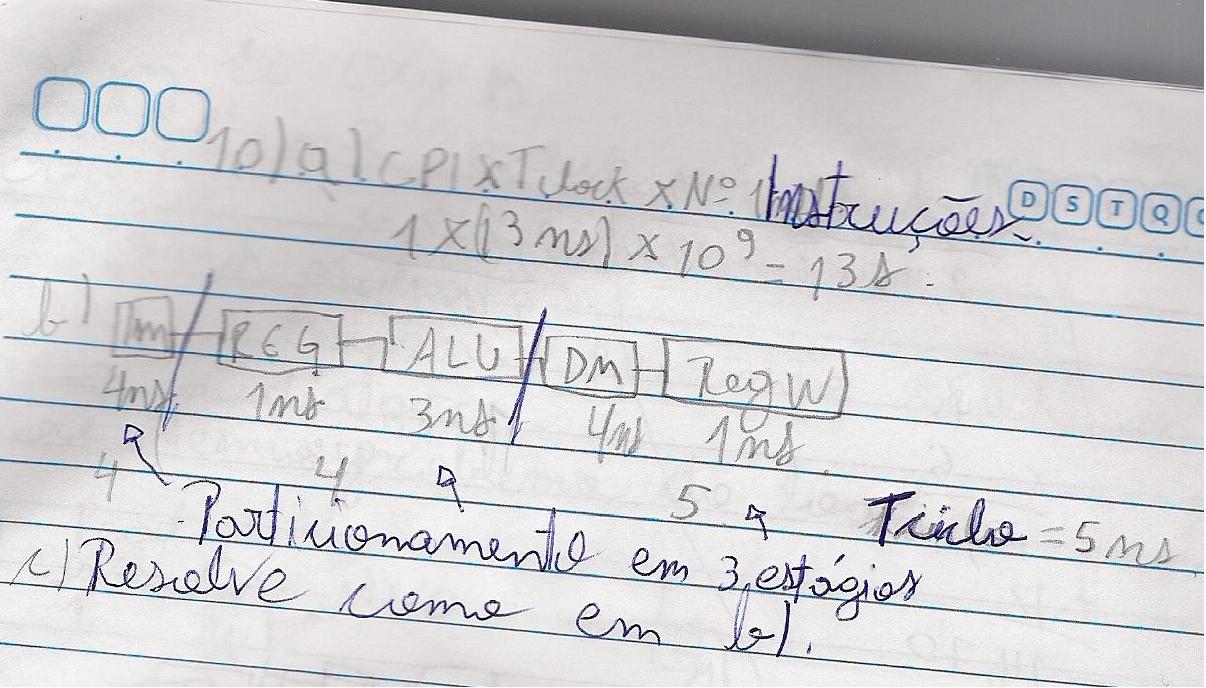 D S T Q
10) a) CPI x Tclock x Nº Instruções
1 x (13 ns) x 10⁹ = 13 s.
b) IM REG ALU DM RegW
4ns 1ns 3ns 4ns 1ns
4 4 5 Tciclo = 5 ns
Particionamento em 3 estágios
c) Resolve como em b).